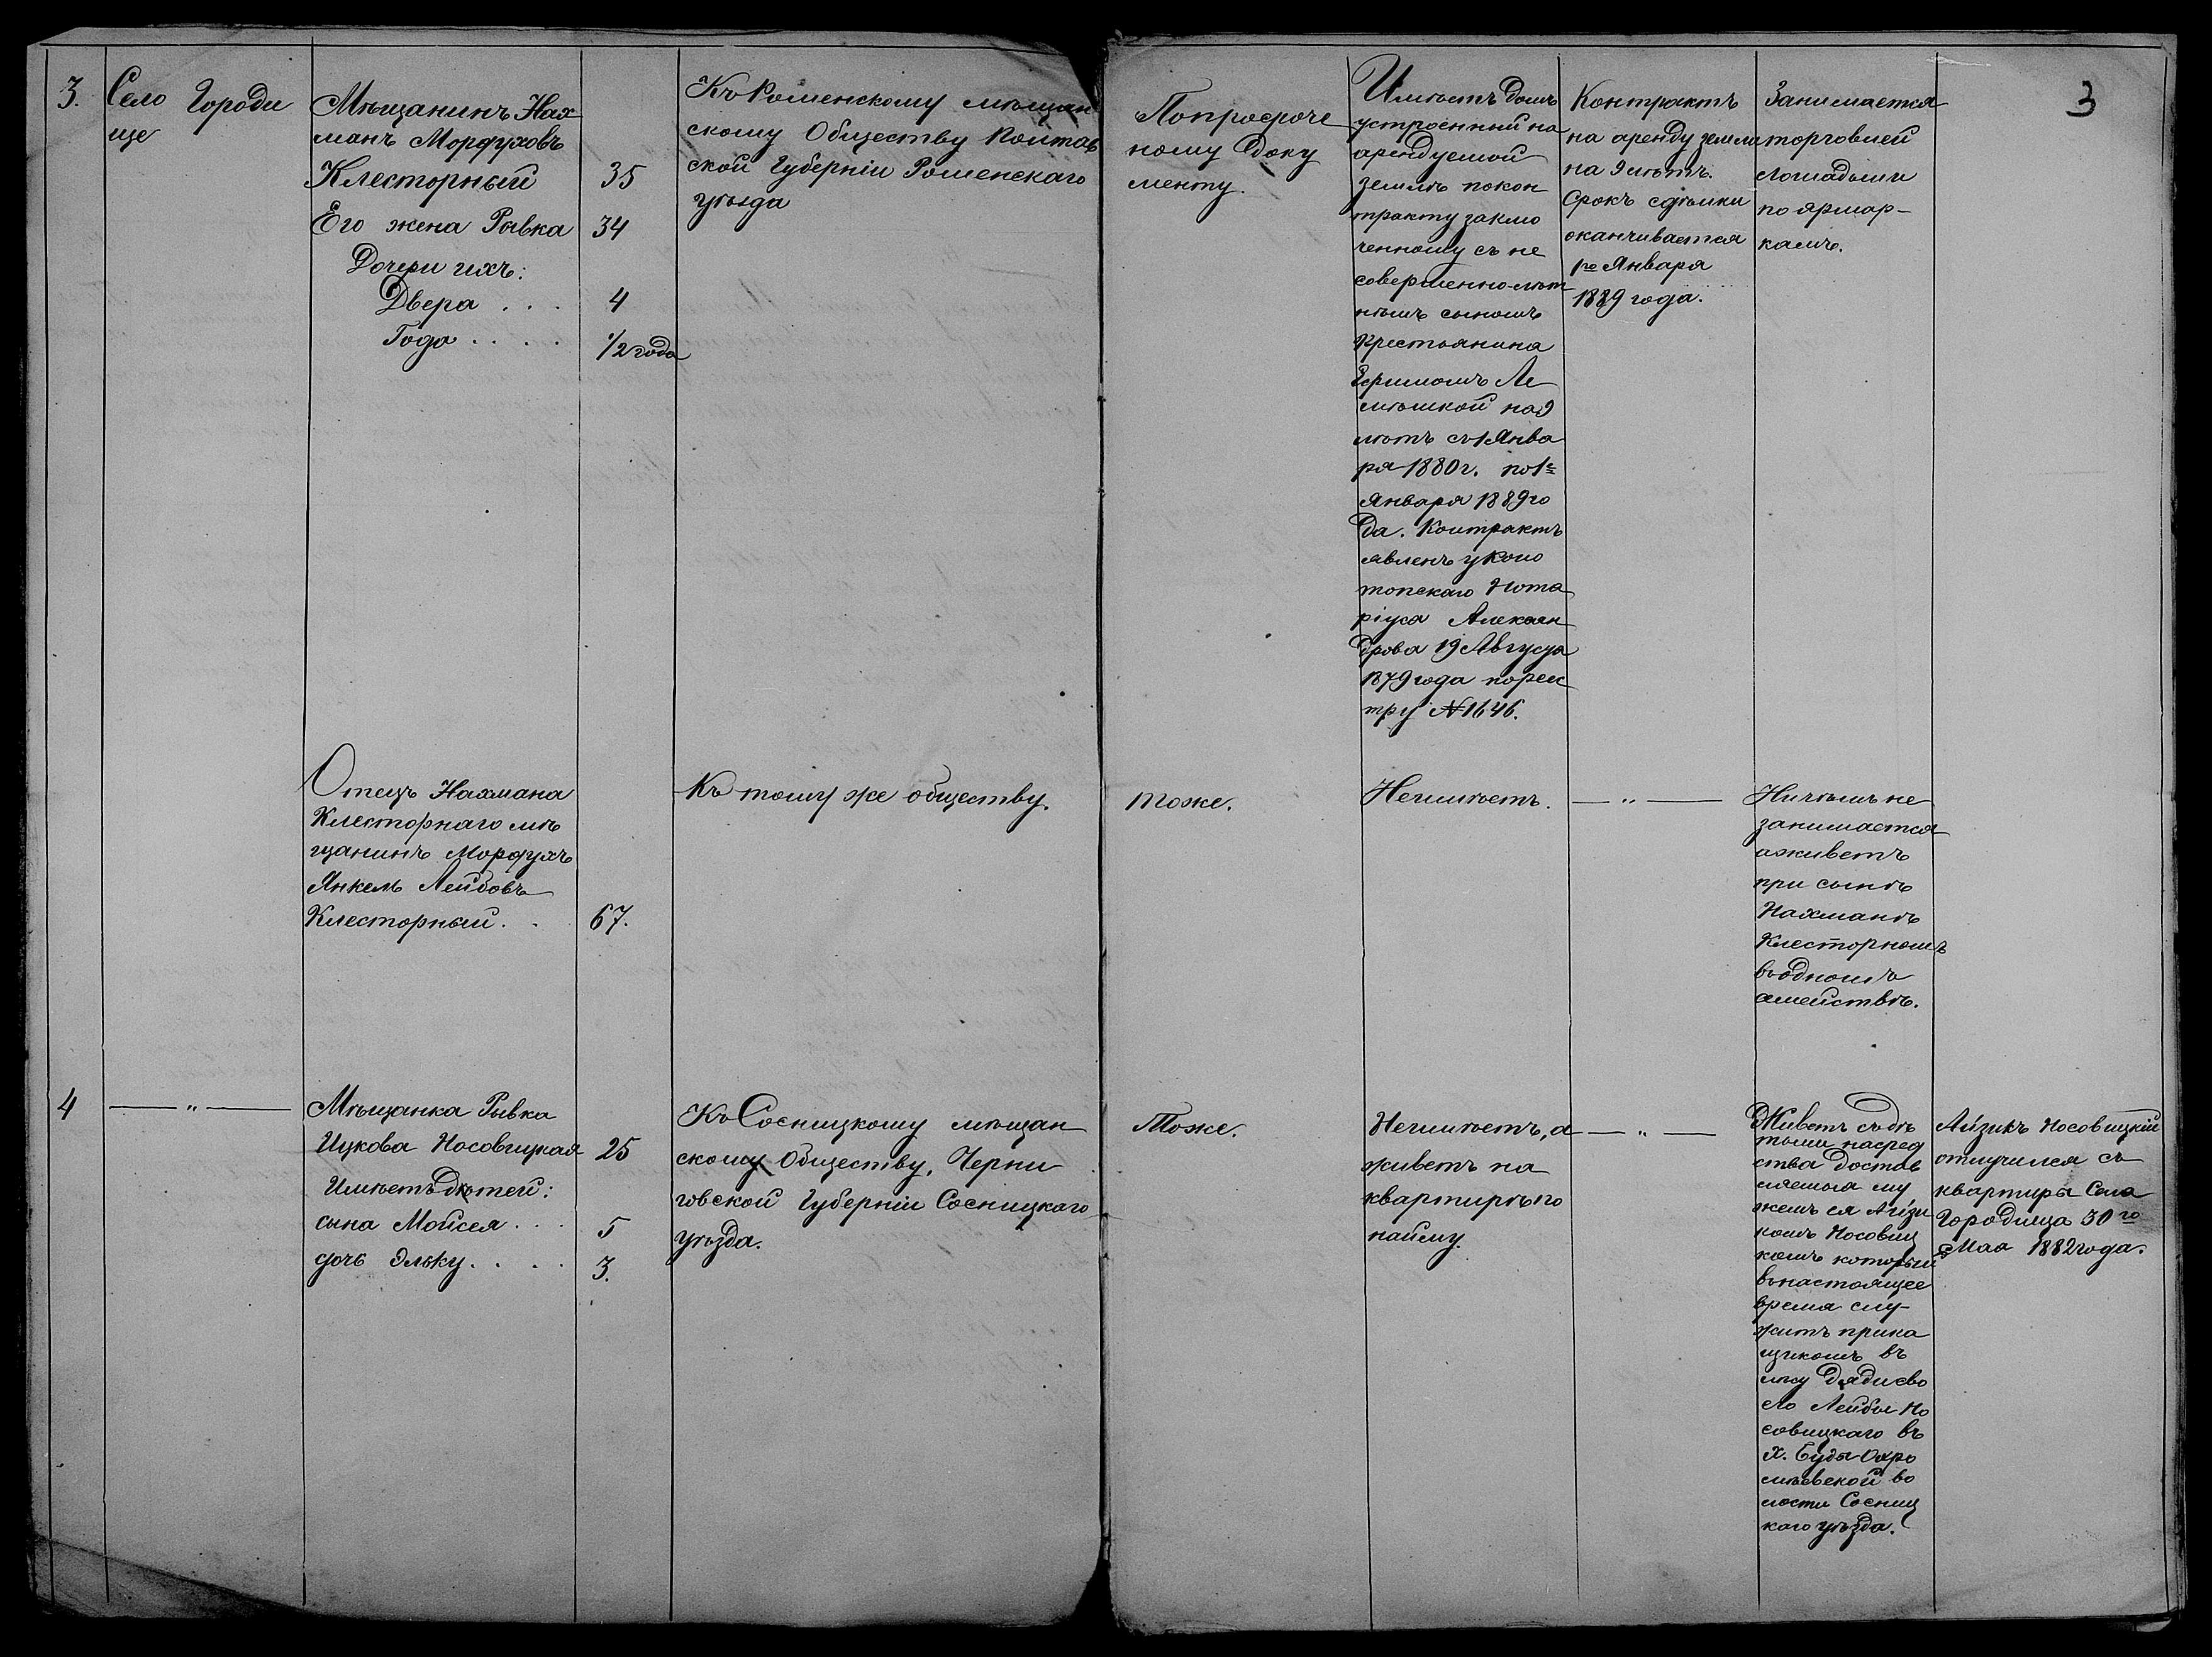 3.
Село Городи
ще
Мѣщанинъ Нах
манъ Мордуховъ
Клесторный 35
Его жена Рывка 34
Дочери ихъ:
Двера . . . 4
Года . . . . 1/2 года
Къ Роменскому мѣщан
скому Обществу Полтав
ской Губерніи Роменскаго
уѣзда
По просроче
ному доку
менту.
Имѣетъ домъ
устроенный на
арендуемой
землѣ по кон
тракту заклю
ченному съ не
совершенно-лѣт
нимъ сыномъ
Крестьянина
Ле
мѣшкой на 9
лѣтъ съ 1 Янва
ря 1880 г. по 1е
Января 1889 го
да. Контрактъ
явленъ у Коно
топскаго Нота
ріуса Алексан
дрова 19 Августа
1879 года по реэс
тру №1646.
Контрактъ
на аренду земли
на 9 лѣтъ.
Срокъ сдѣлки
оканчивается
1го Января
1889 года.
Занимается
торговлей
лошадьми
по ярмар-
камъ.
3
Отецъ Нахмана
Клесторнаго мѣ
щанинъ Мордухъ
Янкель Лейбовъ
Клесторный . . 67.
Къ тому же обществу.
Тоже.
Неимѣетъ.
— " —
Ничѣмъ не
занимается
а живетъ
при сынѣ
Нахманѣ
Клесторномъ
въ одномъ
семействѣ.
4
— " —
Мѣщанка Рывка
Ицкова Носовицкая 25
Имѣетъ дѣтей:
сына Мойсея . . . 5
дочь Эльку . . . . 3.
Къ Сосницкому мѣщан
скому Обществу, Черни
говской Губерніи Сосницкаго
уѣзда.
Тоже.
Неимѣетъ, а
живетъ на
квартирѣ по
найму.
— " —
Живетъ съ дѣ
тьми на сред
ства достав
ляемыя му
жемъ ея Айзи
комъ Носовиц
комъ который
въ настоящее
время слу-
житъ прика
щикомъ въ
лѣсу дяди сво
его Лейбы Но
совицкаго въ
х. Буды Охра
мѣевской во
лости Сосниц
каго уѣзда.
Айзикъ Носовицкій
отлучился съ
квартиры Села
Городища 30го
Мая 1882 года.